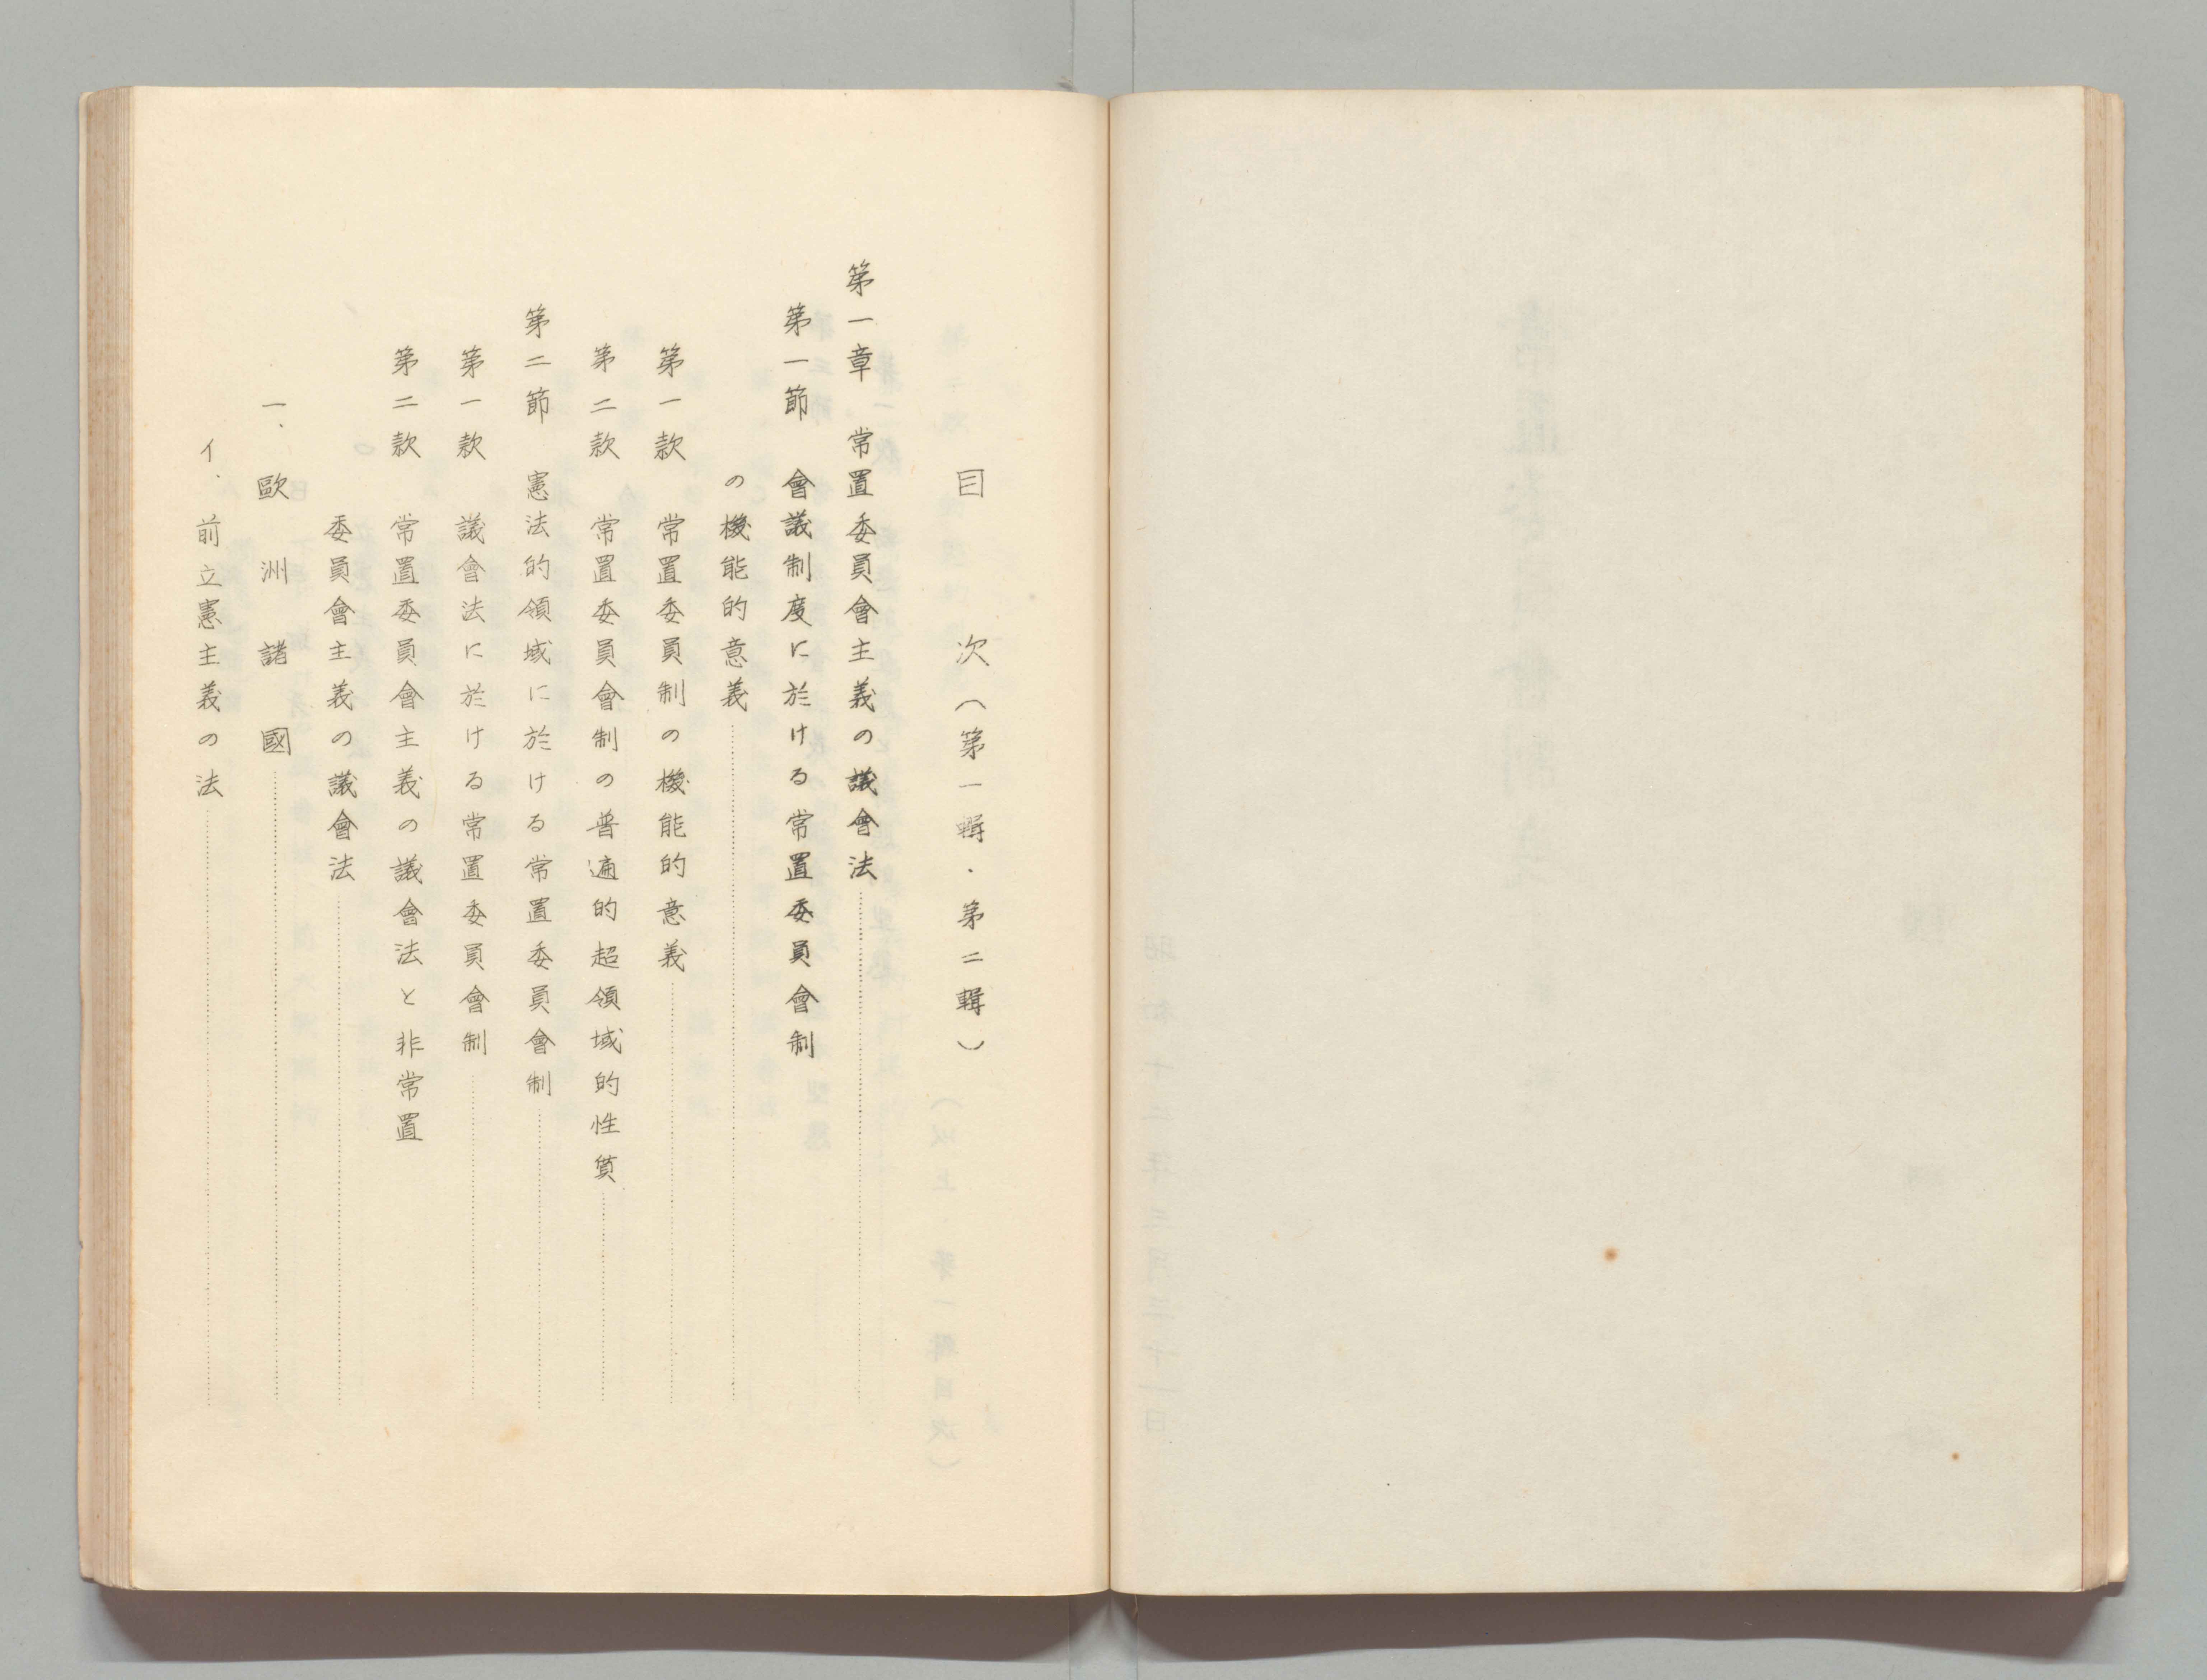 目次（第一輯・第二輯）
第一章　常置委員會主義の議會法
第一節　會議制度に於ける常置委員會制
の機能的意義
第一款　常置委員制の機能的意義
第二款　常置委員會制の普遍的超領域的性質
第二節　憲法的領域に於ける常置委員會制
第一款　議會法に於ける常置委員會制
第二款　常置委員會主義の議會法と非常置
委員會主義の議會法
一、歐洲諸國
イ、前立憲主義の法